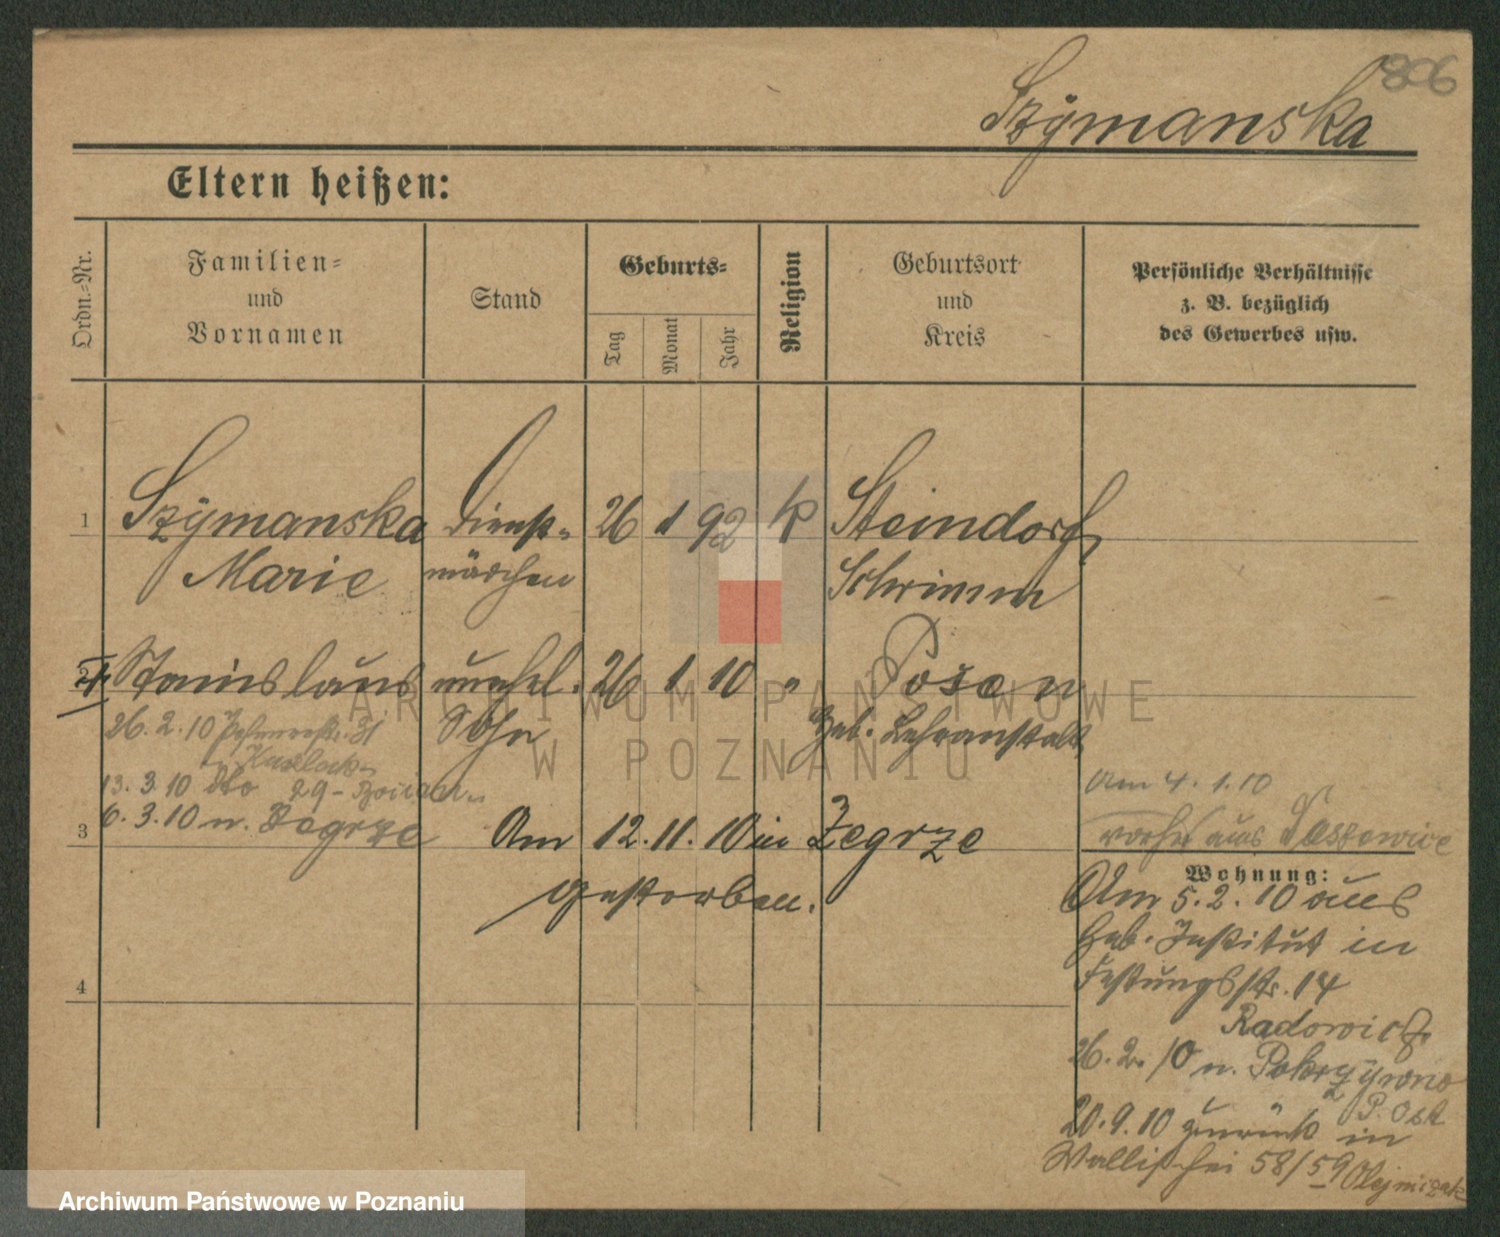 806
Szÿmanska
Eltern heißen:
Ordn.-Nr.
Familien-
und
Vornamen
Stand
Geburts-
Tag
Monat
Jahr
Religion
Geburtsort
und
Kreis
Persönliche Verhältnisse
z. B. bezüglich
des Gewerbes usw.
1 Szÿmanska Dienst- 26 1 92 k Steindorf
Marie mädchen Schrimm
2 Stanislaus unehel. 26 1 10 " Posen
Sohn Heb. Lehranstalt
26. 2. 10 31
13. 3. 10 dto 29
6. 3. 10 n. Zegrze
3 Am 12. 11. 10 in Zegrze
gestorben.
4
Am 4. 1. 10
aus
Wohnung:
Am 5. 2. 10 aus
Heb. Institut in
Festungsstr. 14
26. 2. 10 n. Pokrzÿwno
P. Ost
20. 9. 10 zurück in
Wallischei 58/59 Olejniczak
ARCHIWUM PAŃSTWOWE
W POZNANIU
Archiwum Państwowe w Poznaniu